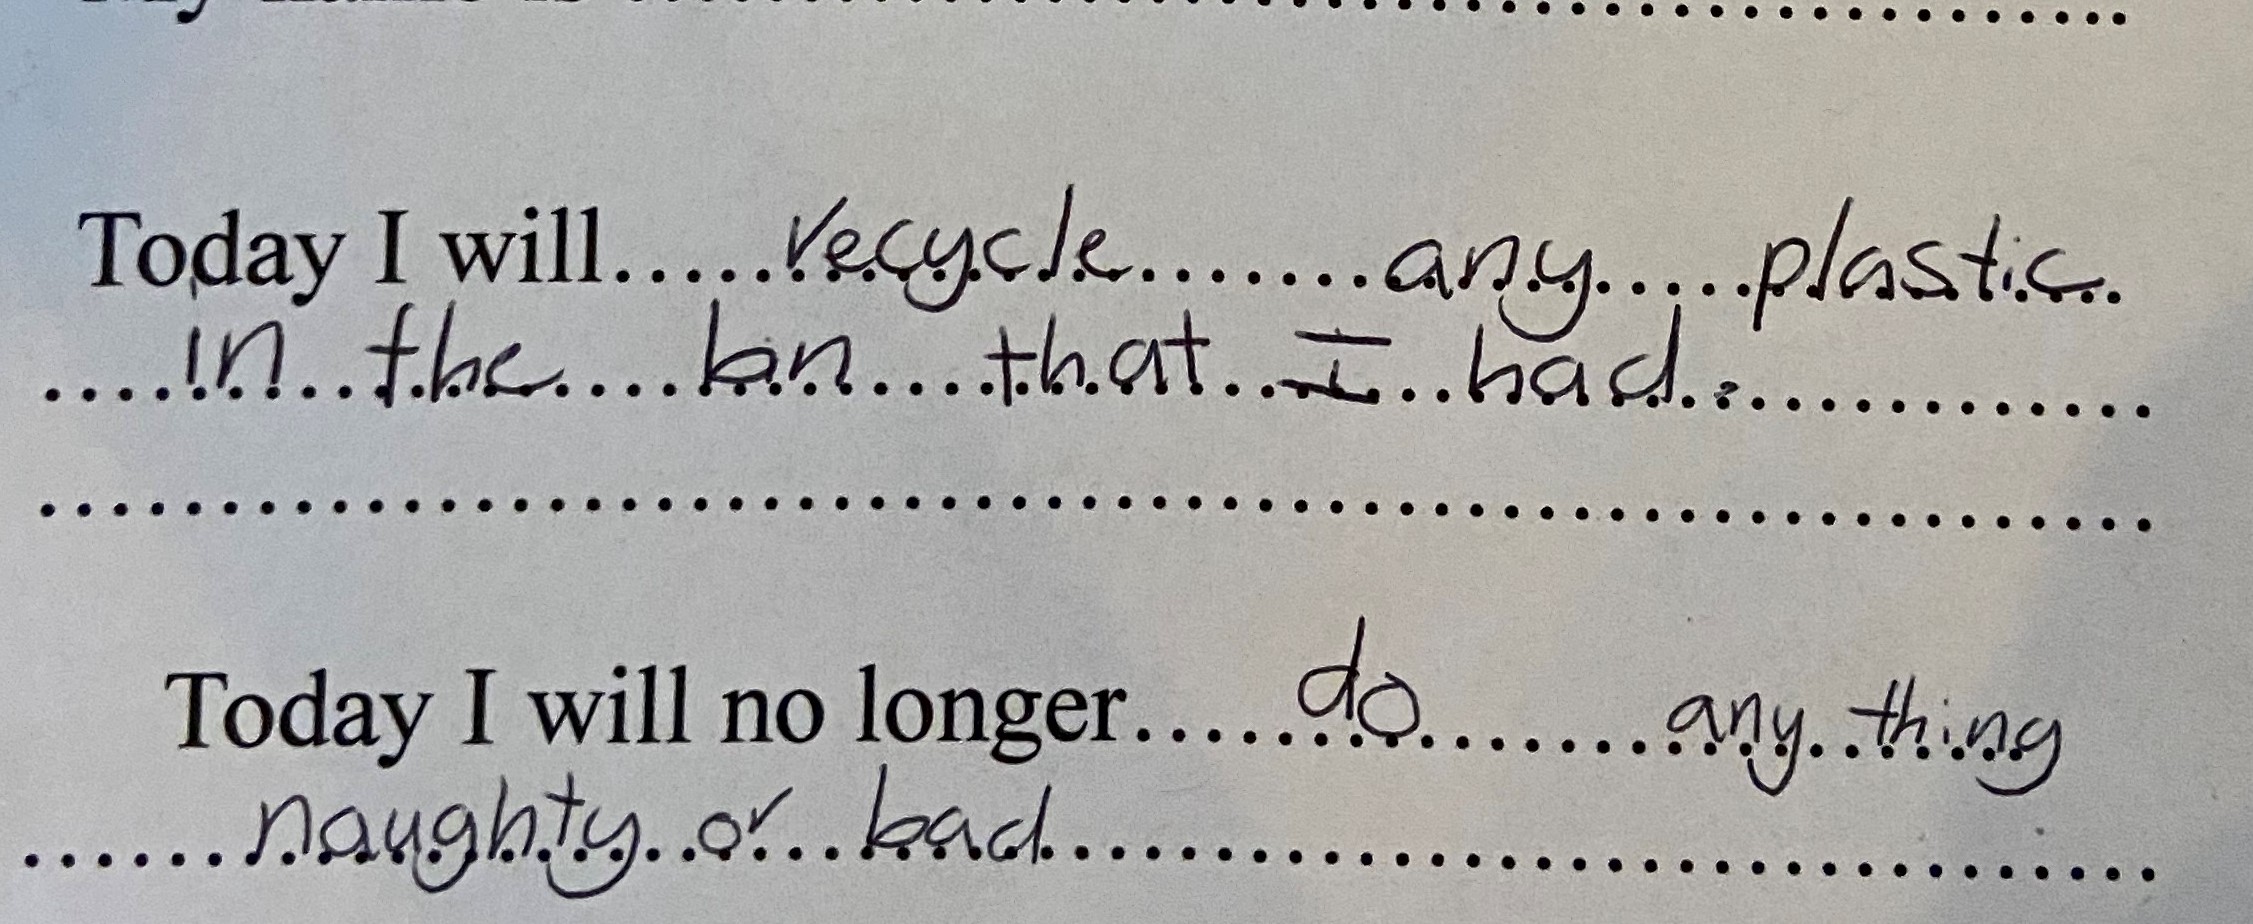 My name is..............................
Today I will.....recycle.......any.....plastic.
....in..the....bin....that..I..had.............
...........................................................
Today I will no longer.....do.......any..thing
......naughty..or...bad...............................